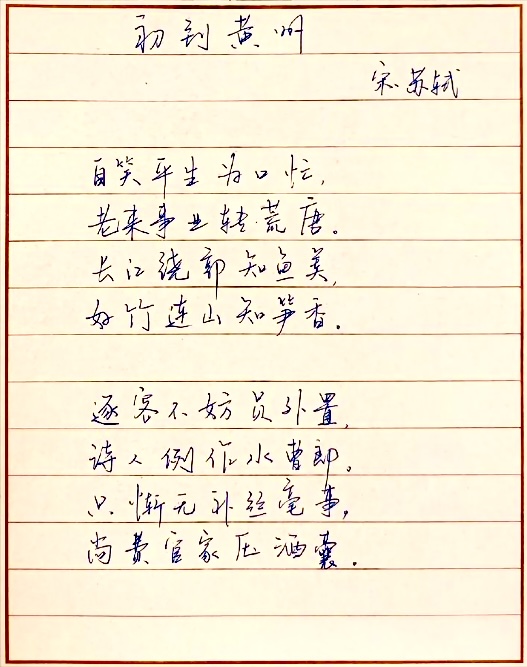 初到黄州
宋·苏轼
自笑平生为口忙，
老来事业转荒唐。
长江绕郭知鱼美，
好竹连山知笋香。
逐客不妨员外置，
诗人例作水曹郎。
只惭无补丝毫事，
尚费官家压酒囊。